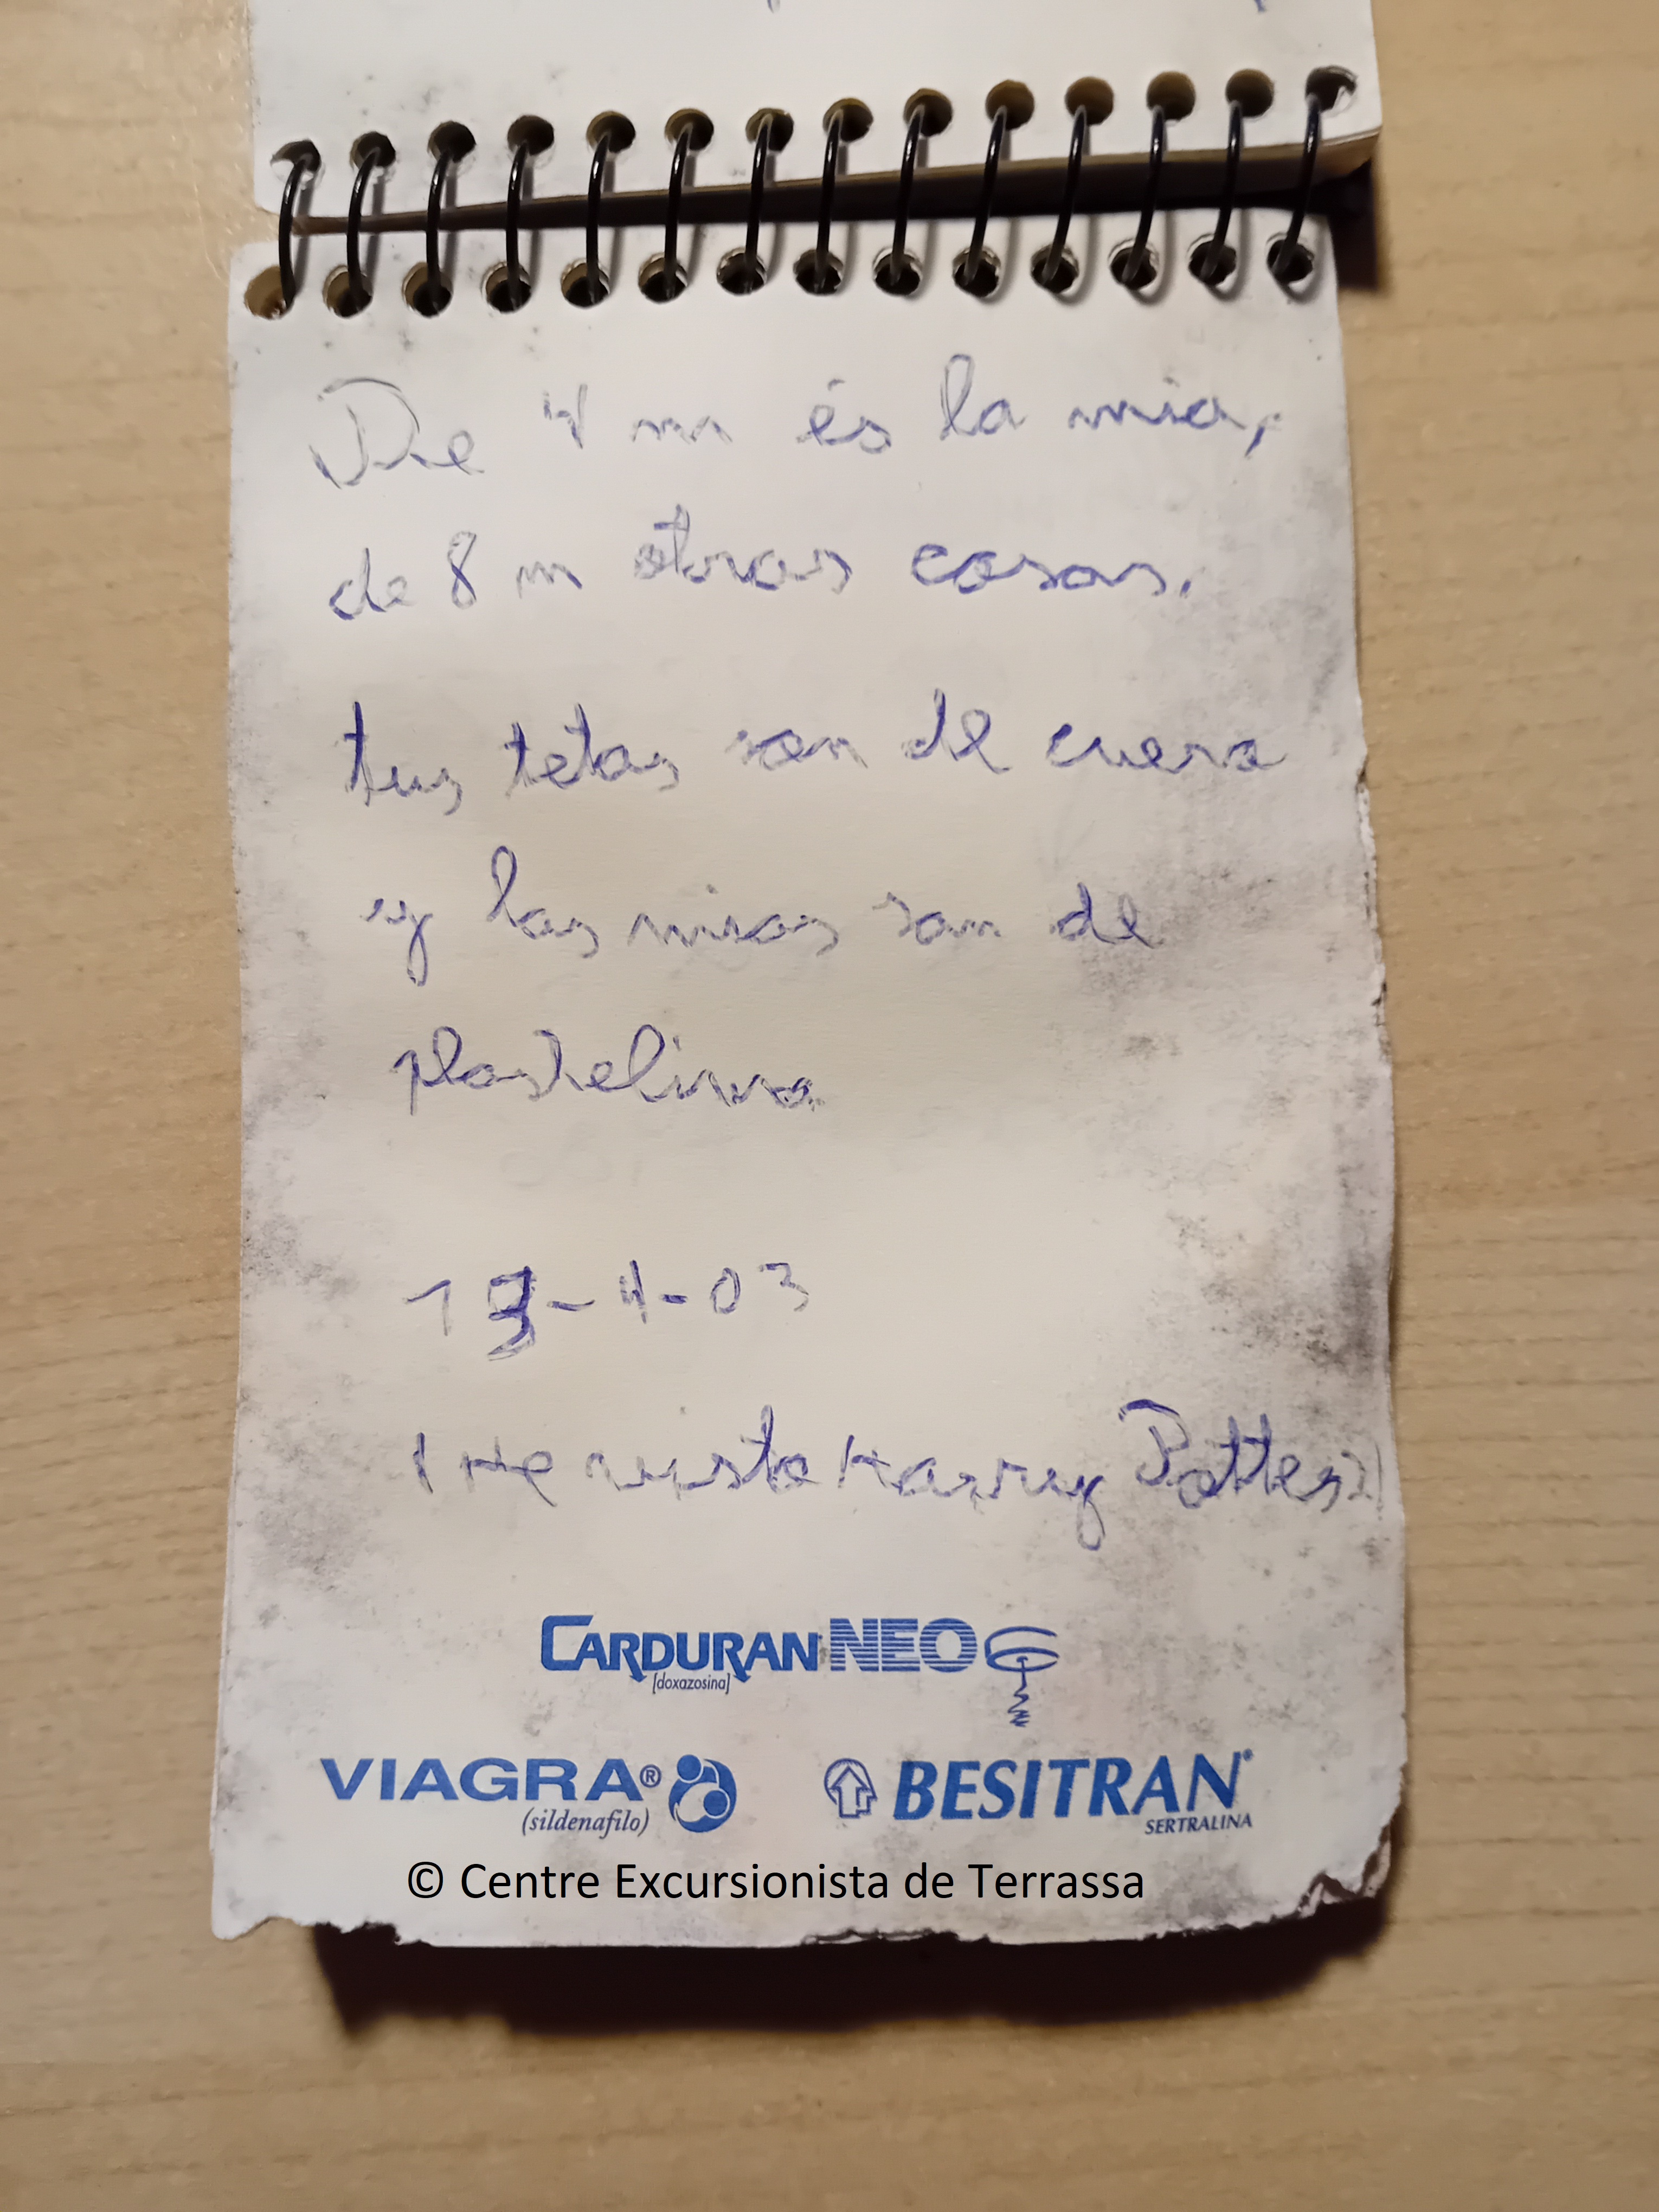 De 4 m és la mia,
de 8 m otras cosas.
tus tetas son de cuero
y las mias son de
plastelina
13-4-03
He visto Harry Potter
CARDURAN NEO
[doxazosina]
VIAGRA® BESITRAN®
(sildenafilo) SERTRALINA
© Centre Excursionista de Terrassa